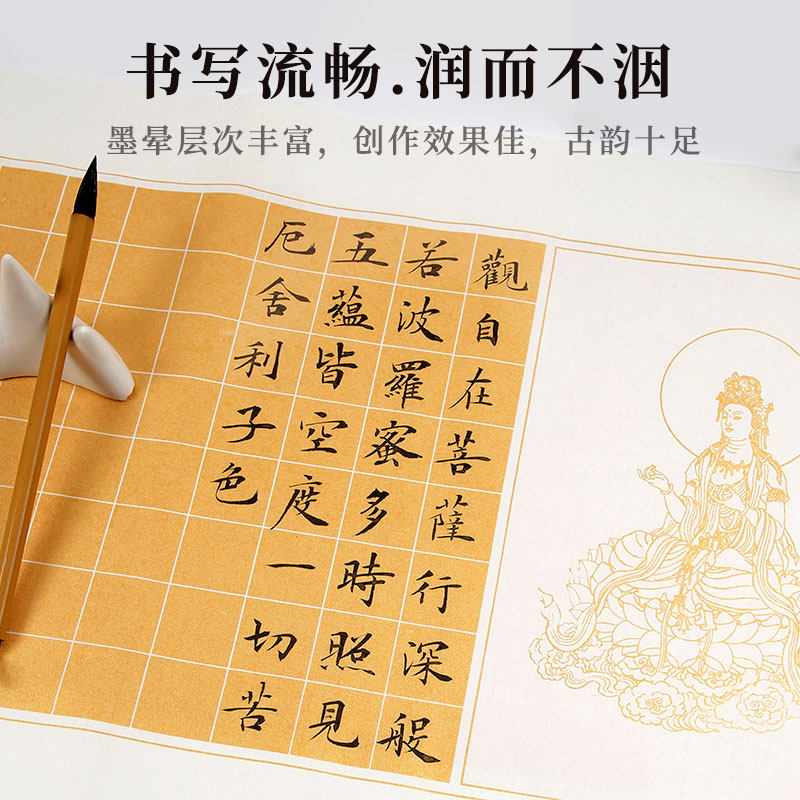 书写流畅.润而不洇
墨晕层次丰富，创作效果佳，古韵十足
觀自在菩薩行深般
若波羅蜜多時照見
五蘊皆空度一切苦
厄舍利子色